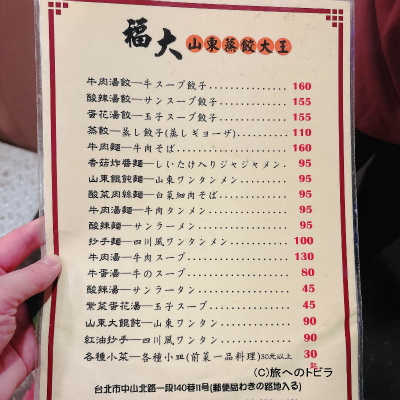 福大 山東蒸餃大王
牛肉湯餃—牛スープ餃子 160
酸辣湯餃—サンスープ餃子 155
蛋花湯餃—玉子スープ餃子 155
蒸餃—蒸し餃子(蒸しギョーザ) 110
牛肉麵—牛肉そば 160
香菇炸醬麵—しいたけ入りジャジャメン 95
山東餛飩麵—山東ワンタンメン 95
酸菜肉絲麵—白菜細肉そば 95
牛肉湯麵—牛肉タンメン 95
酸辣湯麵—サンラーメン 95
抄手麵—四川風ワンタンメン 100
牛肉湯—牛肉スープ 130
牛蛋湯—牛のスープ 80
酸辣湯—サンラータン 45
紫菜蛋花湯—玉子スープ 45
山東大餛飩—山東ワンタン 90
紅油抄手—四川風ワンタン 90
各種小菜—各種小皿(前菜一品料理)30元以上 30
(C)旅へのトビラ
台北市中山北路一段140巷11号(郵便局わきの路地入る)